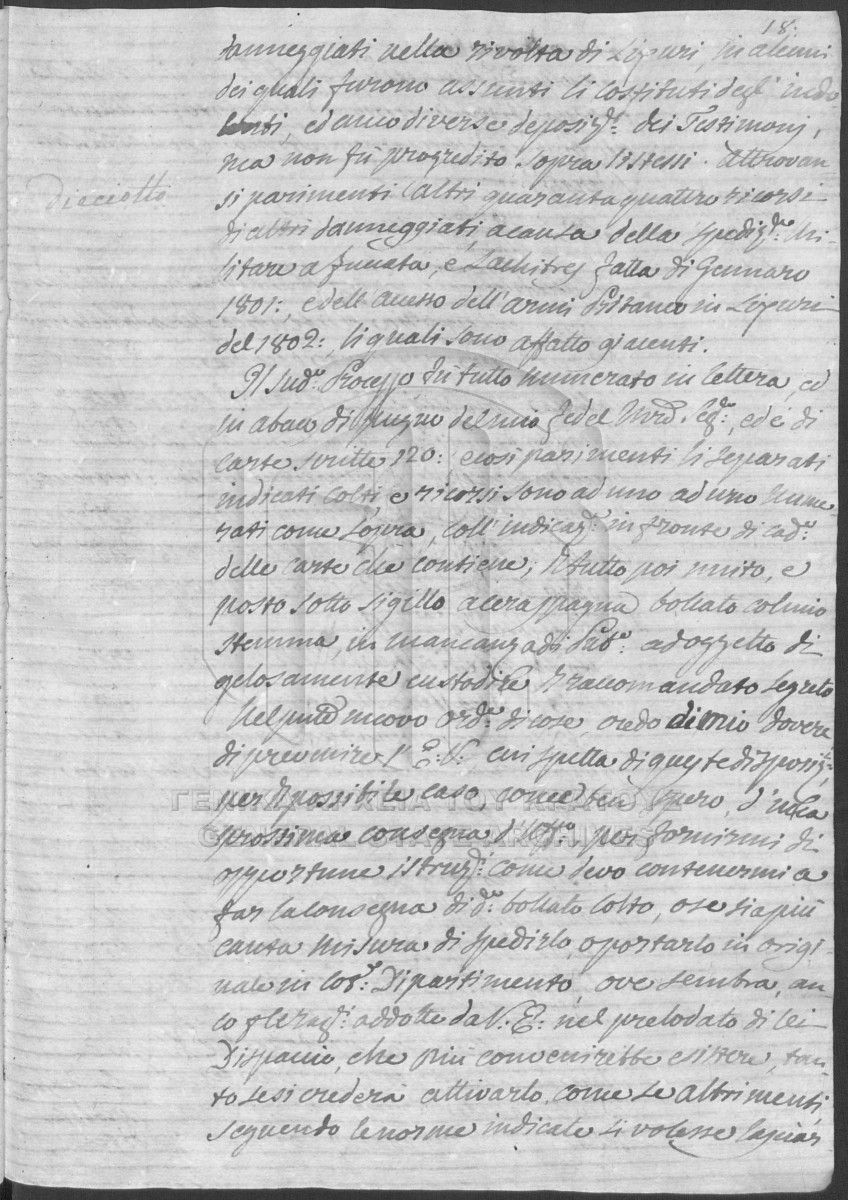 18:
danneggiati nella rivolta di Lixuri, in alcuni
dei quali furono assunti li costituti degl' indo
lenti, ed anco diverse deposiz.ni dei Testimonj,
ma non fù progredito sopra l'istessi. Attrovan
Dieciotto
si parimenti altri quaranta quattro ricorsi
di altri danneggiati, a causa della spediz.ne Mi-
litare a fucata, e Lachitres fatta di Gennaro
1801:, e dell'acesso dell'armi Britanne in Lixuri
del 1802:, li quali sono affatto giacenti.
Il sud.o Processo fù tutto numerato in lettera, ed
in abaco di pugno del mio fedel Nod.o Eg.o, ed è di
carte scritte 120: e così parimenti li separati
indicati Colti e ricorsi sono ad uno ad uno nume-
rati come sopra, coll' indicaz.e in fronte di cad.o
delle carte che contiene; il tutto poi unito, e
posto sotto sigillo a cera spagna bollato col mio
stemma, in mancanza di Pub.o ad oggetto di
gelosamente custodire il raccomandato segreto
Nel pnte nuovo ord.e di cose, credo di mio dovere
di prevenire l' E: V: cui spetta di queste disposiz.ni
per il possibile caso, come ben spero, d'una
prossima consegna d'Off.o per fornirmi di
opportune istruz.ni come devo contenermi a
far la consegna di d.o bollato Colto, o se sia più
cauta misura di spedirlo, o portarlo in origi-
nale in Cot.o Dipartimento, ove sembra, an
co p le rag.i addotte da V: E: nel prelodato di lei
Dispaccio, che più convenirebbe esistere, tan-
to se si crederà attivarlo, come se altrimenti,
seguendo le norme indicate si volesse lasciar